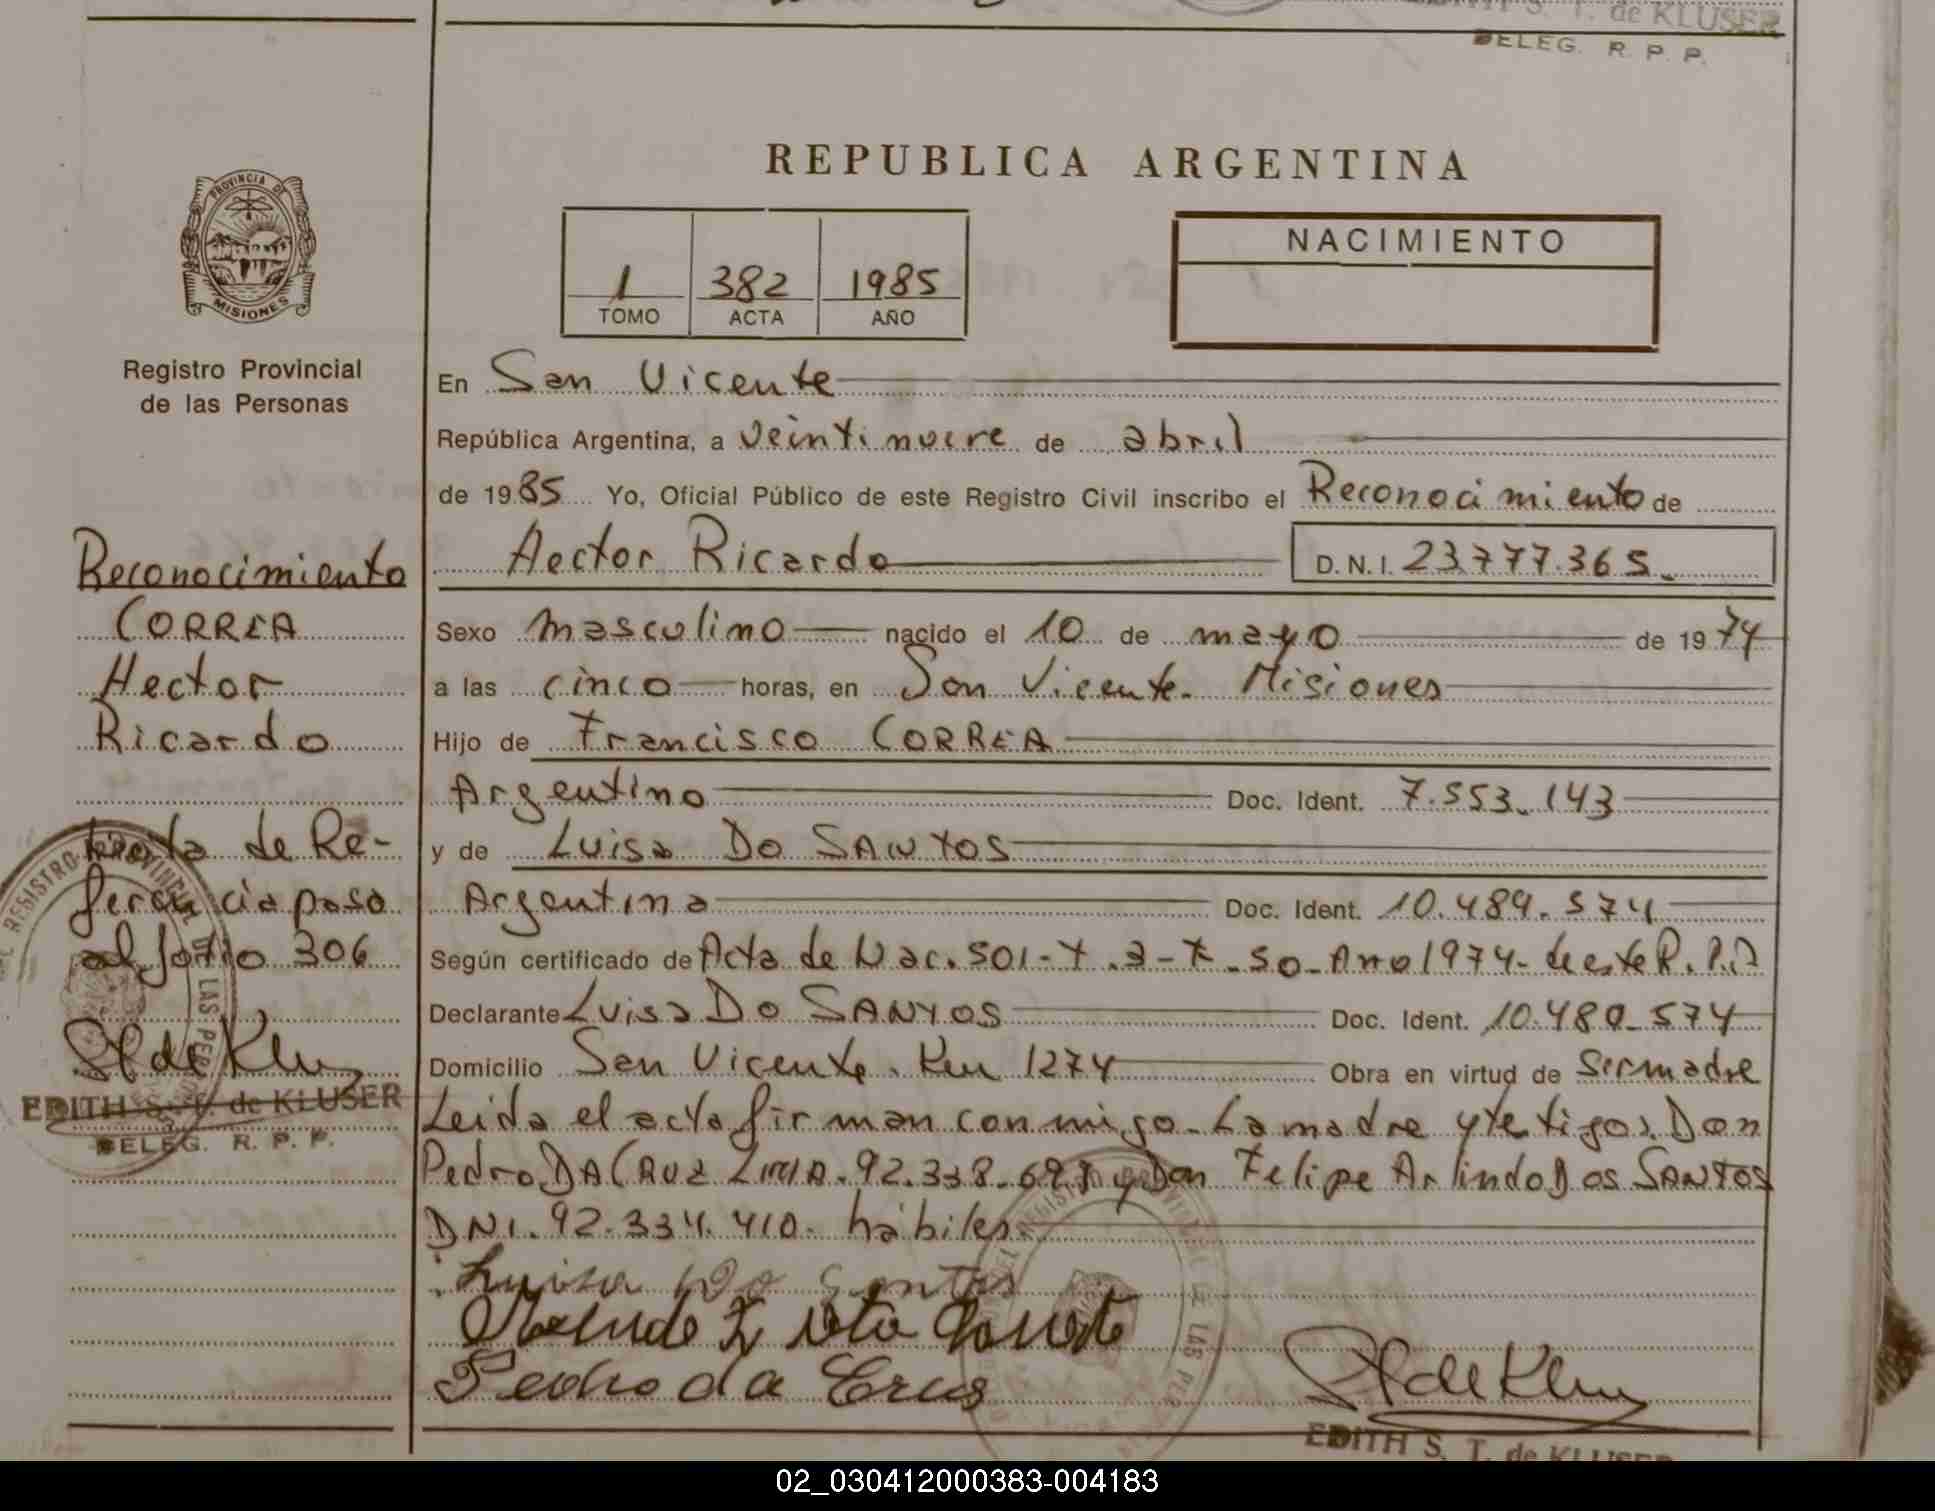 S. T. de KLUSER
DELEG. R. P. P.
REPUBLICA ARGENTINA
PROVINCIA DE
MISIONES
1 382 1985
TOMO ACTA AÑO
NACIMIENTO
Registro Provincial
de las Personas
En San Vicente
República Argentina, a veintinueve de abril
de 1985 Yo, Oficial Público de este Registro Civil inscribo el Reconocimiento de
Hector Ricardo D.N.I. 23.777.365
Sexo masculino nacido el 10 de mayo de 1974
a las cinco horas, en San Vicente. Misiones
Hijo de Francisco CORREA
Argentino Doc. Ident. 7.553.143
y de Luisa DO SANTOS
Argentina Doc. Ident. 10.489.574
Según certificado de Acta de Nac. 501-T.2-F.50-Año 1974-de este R.P.P
Declarante Luisa DO SANTOS Doc. Ident. 10.480.574
Domicilio San Vicente. Km 1274 Obra en virtud de ser madre
Leida el acta firman conmigo. La madre y testigos. Don
Pedro DA CRUZ 92.338. y Don Felipe Arlindo Dos SANTOS
DNI. 92.334.410. hábiles.
Luisa Do Santos
Pedro da Cruz
EDITH S. T. de KLUSER
Reconocimiento
CORREA
Hector
Ricardo
Nota de Re-
ferencia paso
al folio 306
EDITH S. T. de KLUSER
DELEG. R. P. P.
02_030412000383-004183